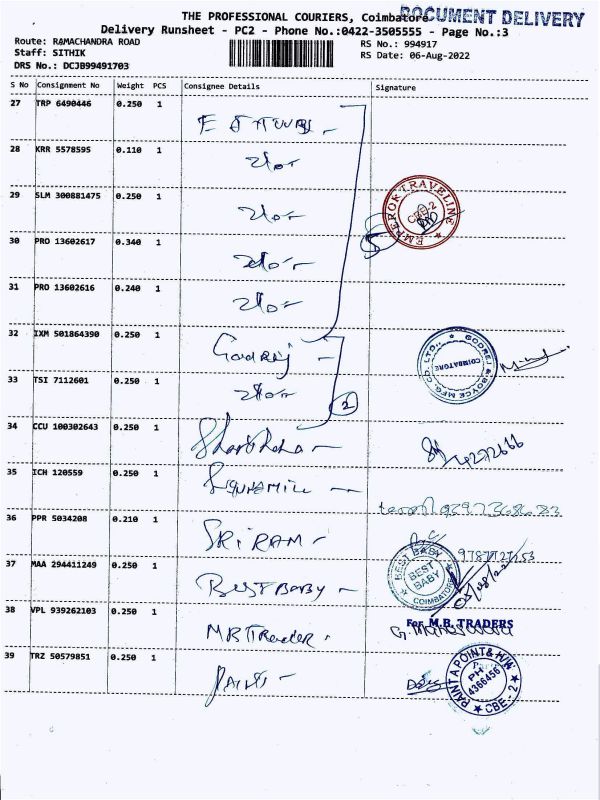 THE PROFESSIONAL COURIERS, Coimbatore
DOCUMENT DELIVERY
Delivery Runsheet - PC2 - Phone No.:0422-3505555 - Page No.:3
Route: RAMACHANDRA ROAD
RS No.: 994917
Staff: SITHIK
RS Date: 06-Aug-2022
DRS No.: DCJB99491703
S No Consignment No Weight PCS Consignee Details Signature
27 TRP 6490446 0.250 1
28 KRR 5578595 0.110 1
29 SLM 300881475 0.250 1
EMPEROR TRAVELINE
CBE-2
30 PRO 13602617 0.340 1
31 PRO 13602616 0.240 1
32 IXM 501864390 0.250 1 Godrej
GODREJ & BOYCE MFG. CO. LTD.,
COIMBATORE
33 TSI 7112601 0.250 1
2
34 CCU 100302643 0.250 1
35 ICH 120559 0.250 1
36 PPR 5034208 0.210 1 SRIRAM
37 MAA 294411249 0.250 1 BEST BABY
BEST BABY
BEST BABY
COIMBATORE
38 VPL 939262103 0.250 1 MB Traders
For M.B. TRADERS
39 TRZ 50579851 0.250 1 PAINT
PAINT A POINT & H/W
PH
4366456
CBE - 2